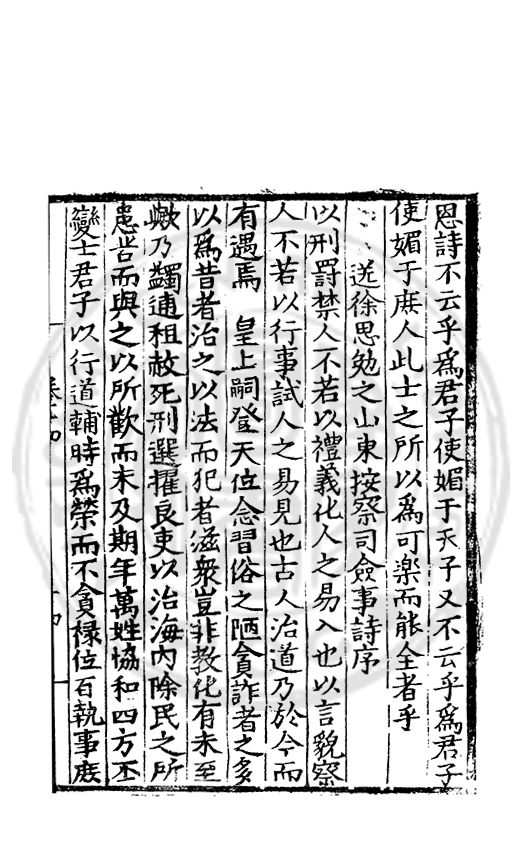 恩詩不云乎爲君子使媚于天子又不云乎爲君子
使媚于庶人此士之所以爲可楽而能全者乎
送徐思勉之山東按察司僉事詩序
以刑罰禁人不若以禮義化人之易入也以言貌察
人不若以行事試人之易見也古人治道乃於今而
有遇焉 皇上嗣登天位念習俗之陋貪詐者之多
以爲昔者治之以法而犯者滋衆豈非教化有未至
歟乃蠲逋租赦死刑選擢良吏以治海內除民之所
患苦而與之以所歡而未及期年萬姓協和四方丕
變士君子以行道輔時爲榮而不貪祿位百執事庶